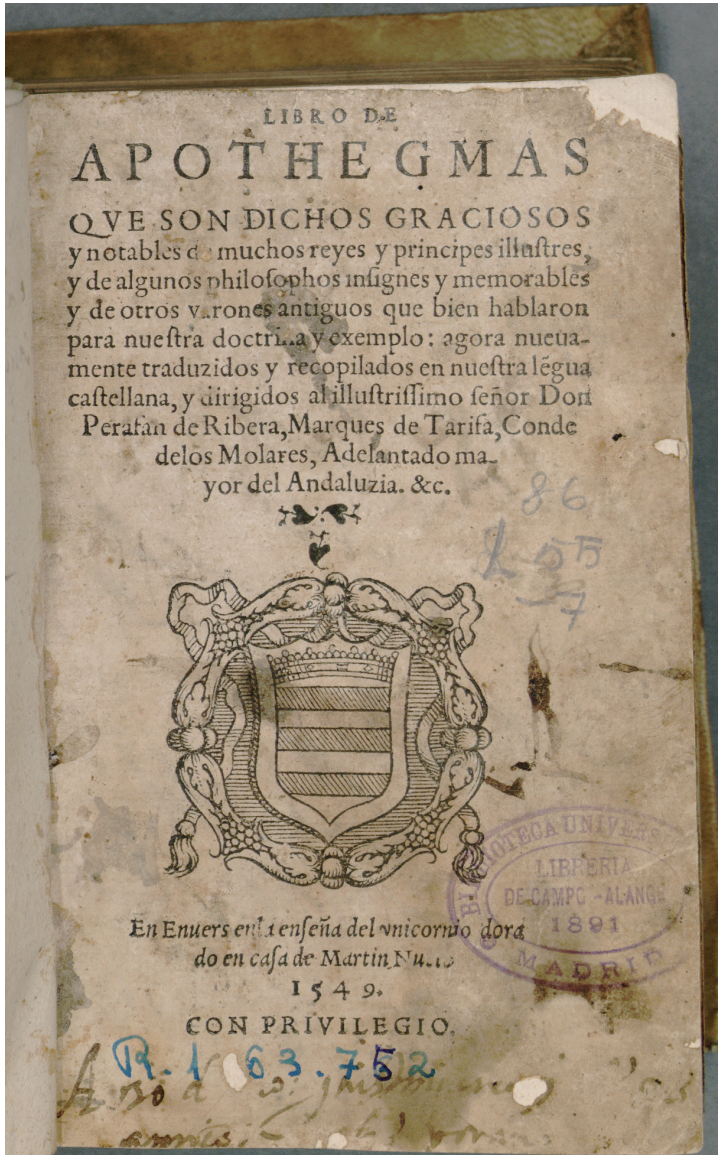 LIBRO DE
APOTHEGMAS
QVE SON DICHOS GRACIOSOS
y notables muchos reyes y principes illuſtres,
y de algunos philoſophos inſignes y memorables
y de otros antiguos que bien hablaron
para nueſtra y exemplo: agora nueua-
mente traduzidos y recopilados en nueſtra lẽgua
caſtellana, y dirigidos al illuſtriſſimo ſeñor Don
Perafan de Ribera, Marques de Tarifa, Conde
delos Molares, Adelantado ma-
yor del Andaluzia. &c.
86
55
7
BIBLIOTECA
LIBRERIA
DE CAMPO-ALANGE
1891
MADRID
En Enuers enſeña del vnicornio dora
do en caſa de Martin
1549.
CON PRIVILEGIO.
R. 1 63.752